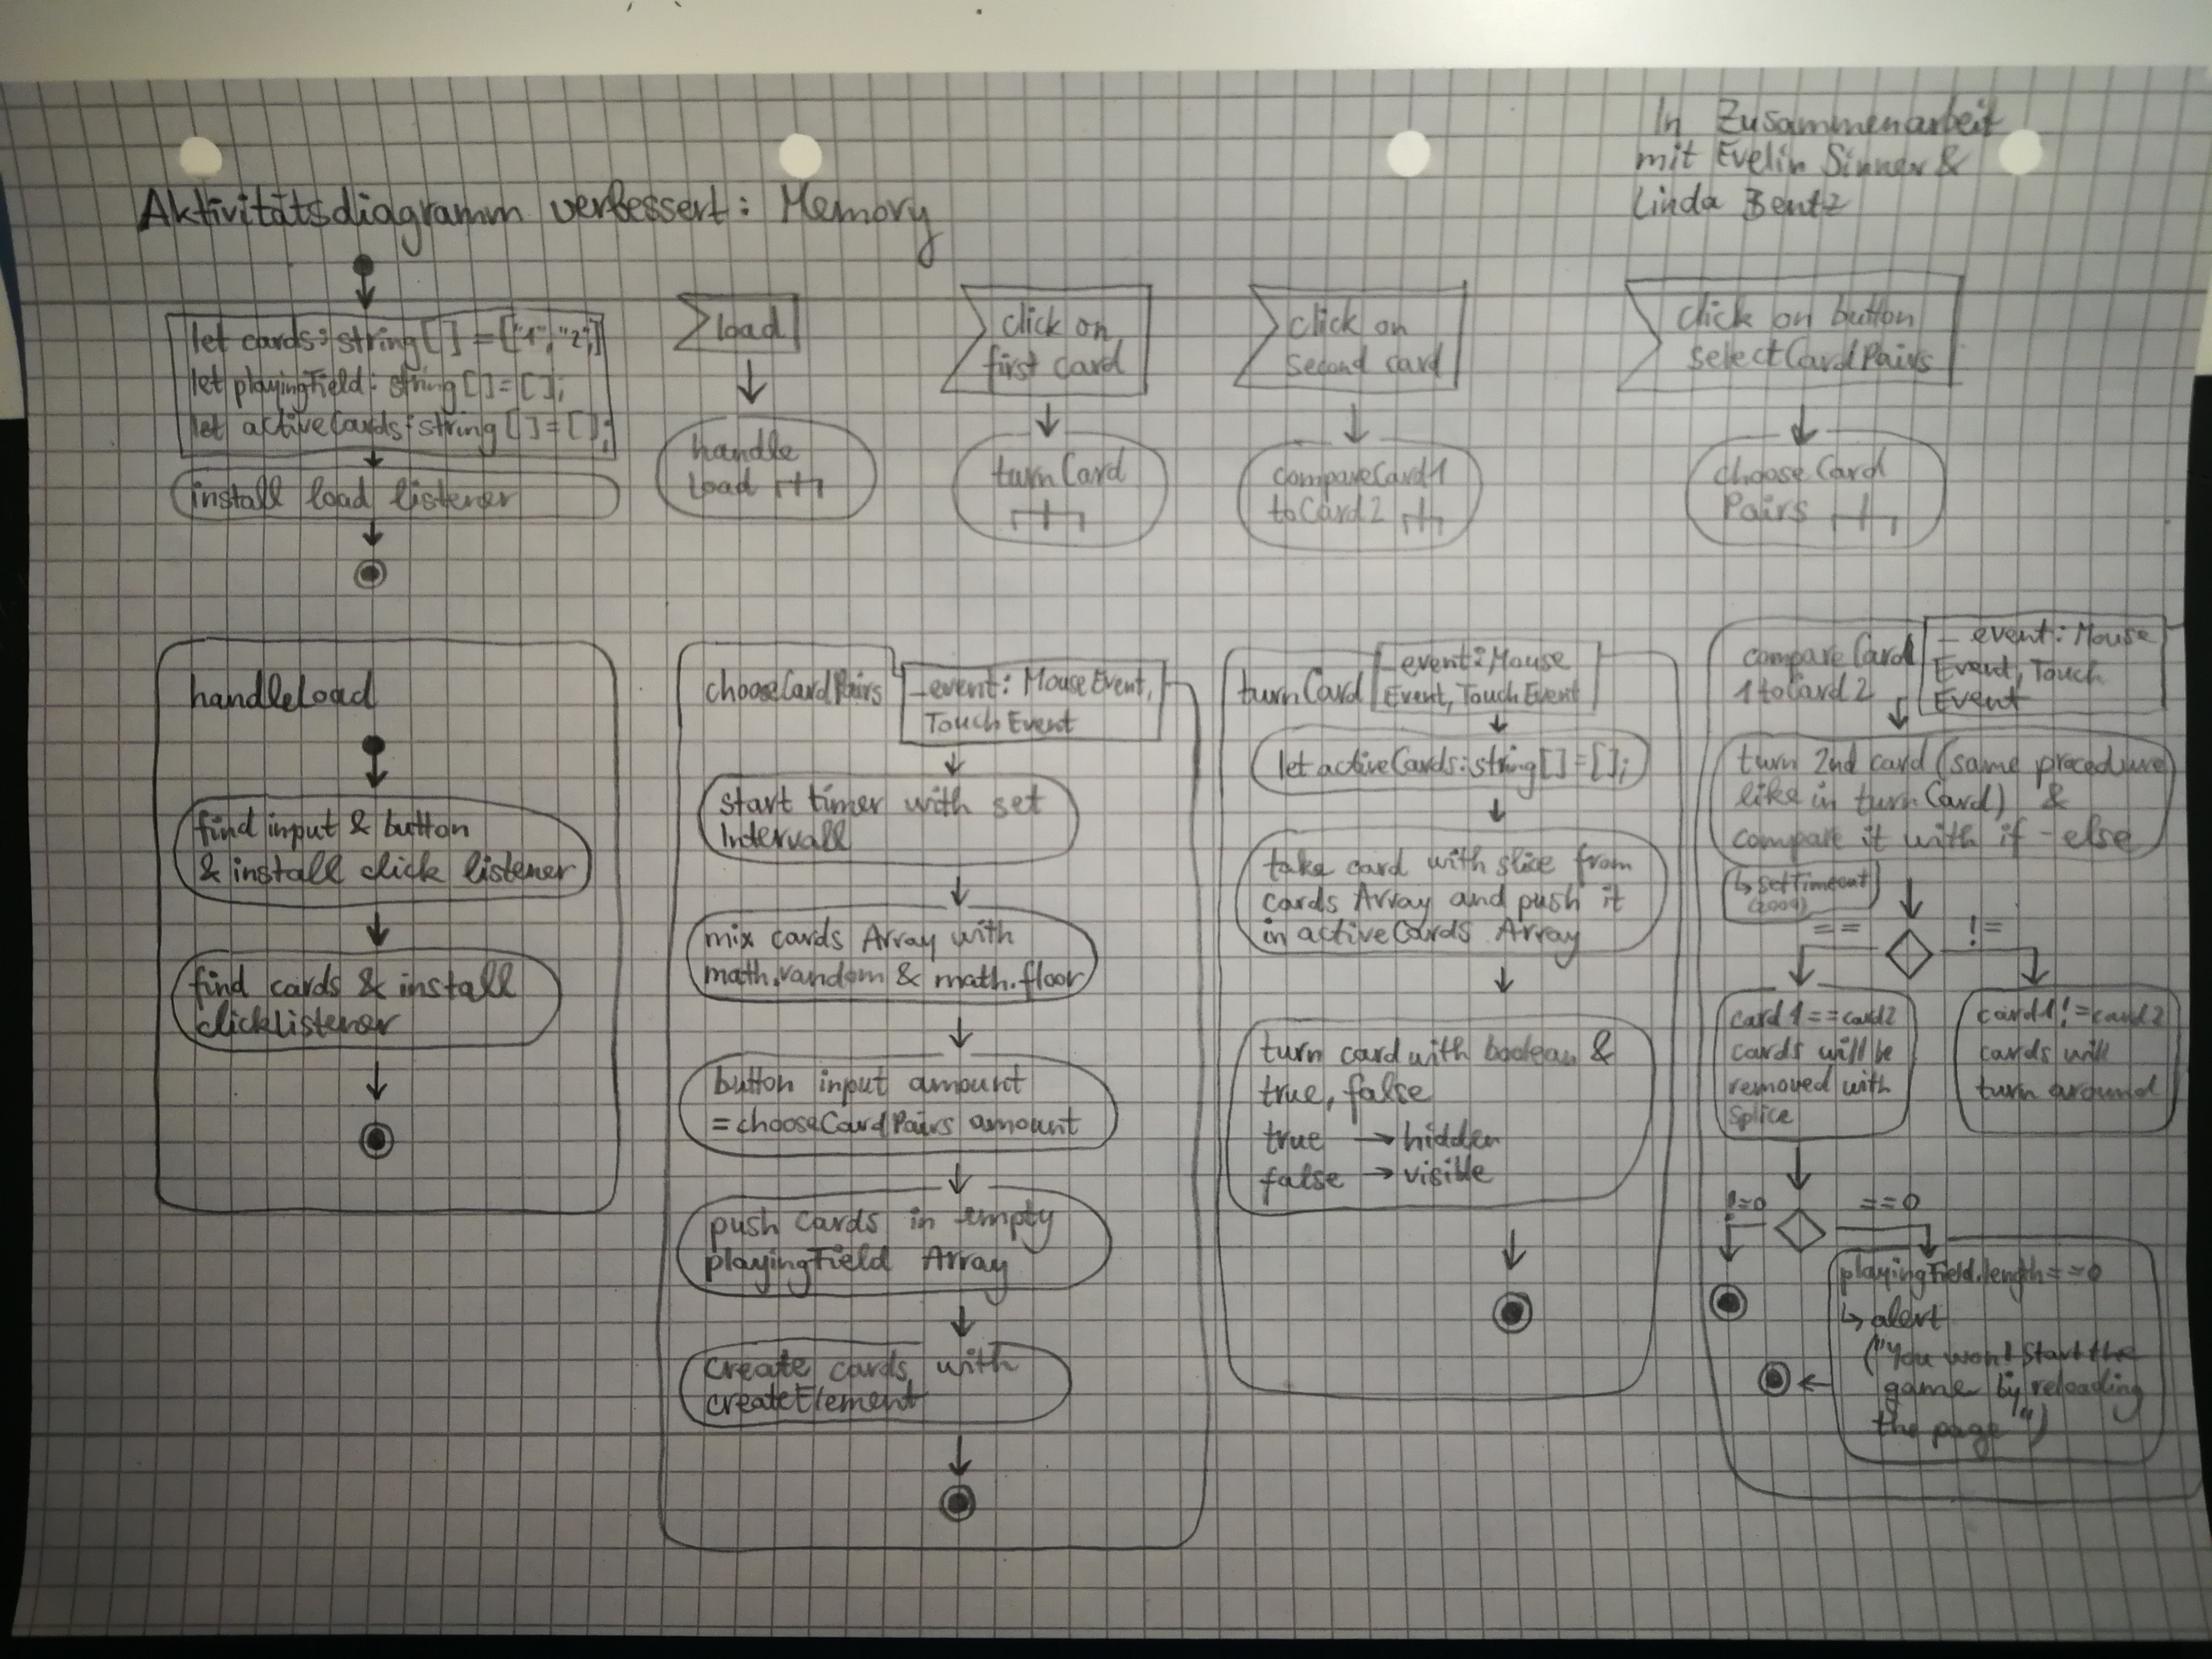 In Zusammenarbeit
mit Evelin Sinner &
Linda Bentz
Aktivitätsdiagramm verbessert: Memory
let cards: string[] = ["1", "2",]
let playingField: string[] = [];
let activeCards: string[] = [];
install load listener
load
handle
Load
click on
first card
turnCard
click on
second card
compareCard1
toCard2
click on button
selectCardPairs
chooseCard
Pairs
handleLoad
find input & button
& install click listener
find cards & install
clickListener
chooseCardPairs
_event: MouseEvent,
TouchEvent
start timer with set
Intervall
mix cards Array with
math.random & math.floor
button input amount
= chooseCardPairs amount
push cards in empty
playingField Array
create cards with
createElement
turnCard
_event: Mouse
Event, TouchEvent
let activeCards: string[] = [];
take card with slice from
cards Array and push it
in activeCards Array
turn card with boolean &
true, false
true → hidden
false → visible
compareCard
1toCard2
_event: Mouse
Event, Touch
Event
turn 2nd card (same procedure
like in turnCard) &
compare it with if-else
↳ setTimeout
==
!=
card1==card2
cards will be
removed with
splice
card1!=card2
cards will
turn around
!=0
==0
playingField.length==0
↳ alert
("You won! Start the
game by reloading
the page")